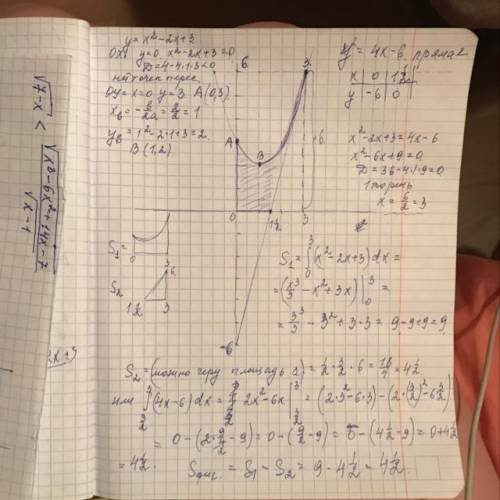 y = x² - 2x + 3
OX y=0 x²-2x+3=0
D=4-4·1·3<0
нет точек перес.
OY=x=0 y=3 A(0,3)
x_в = -b/2a = 2/2 = 1
y_в = 1²-2·1+3=2
B(1,2)
y = 4x-6 прямая
x | 0 | 1½
y | -6 | 0
x²-2x+3=4x-6
x²-6x+9=0
D=36-4·1·9=0
1 корень
x = 6/2 = 3
6
3
A
B
6
0
1½
3
-6
S₁=
0 3
S₂
6
1½ 3
S₁ = ∫₀³ (x²-2x+3)dx =
= (x³/3 - x² + 3x) |₀³ =
= 3³/3 - 3² + 3·3 = 9-9+9=9
S₂ = (можно геру площадь △) = ½·3/2·6 = 18/4 = 4½
или ∫ (4x-6)dx = 2x²-6x | = (2·3²-6·3) - (2·(3/2)²-6·3/2)
= 0-(2·9/4-9) = 0-(9/2-9) = 0-(4½-9) = 0+4½
= 4½. Sфиг = S₁ - S₂ = 9-4½ = 4½.
√7-x < √x³-6x²+14x-7
√x-1